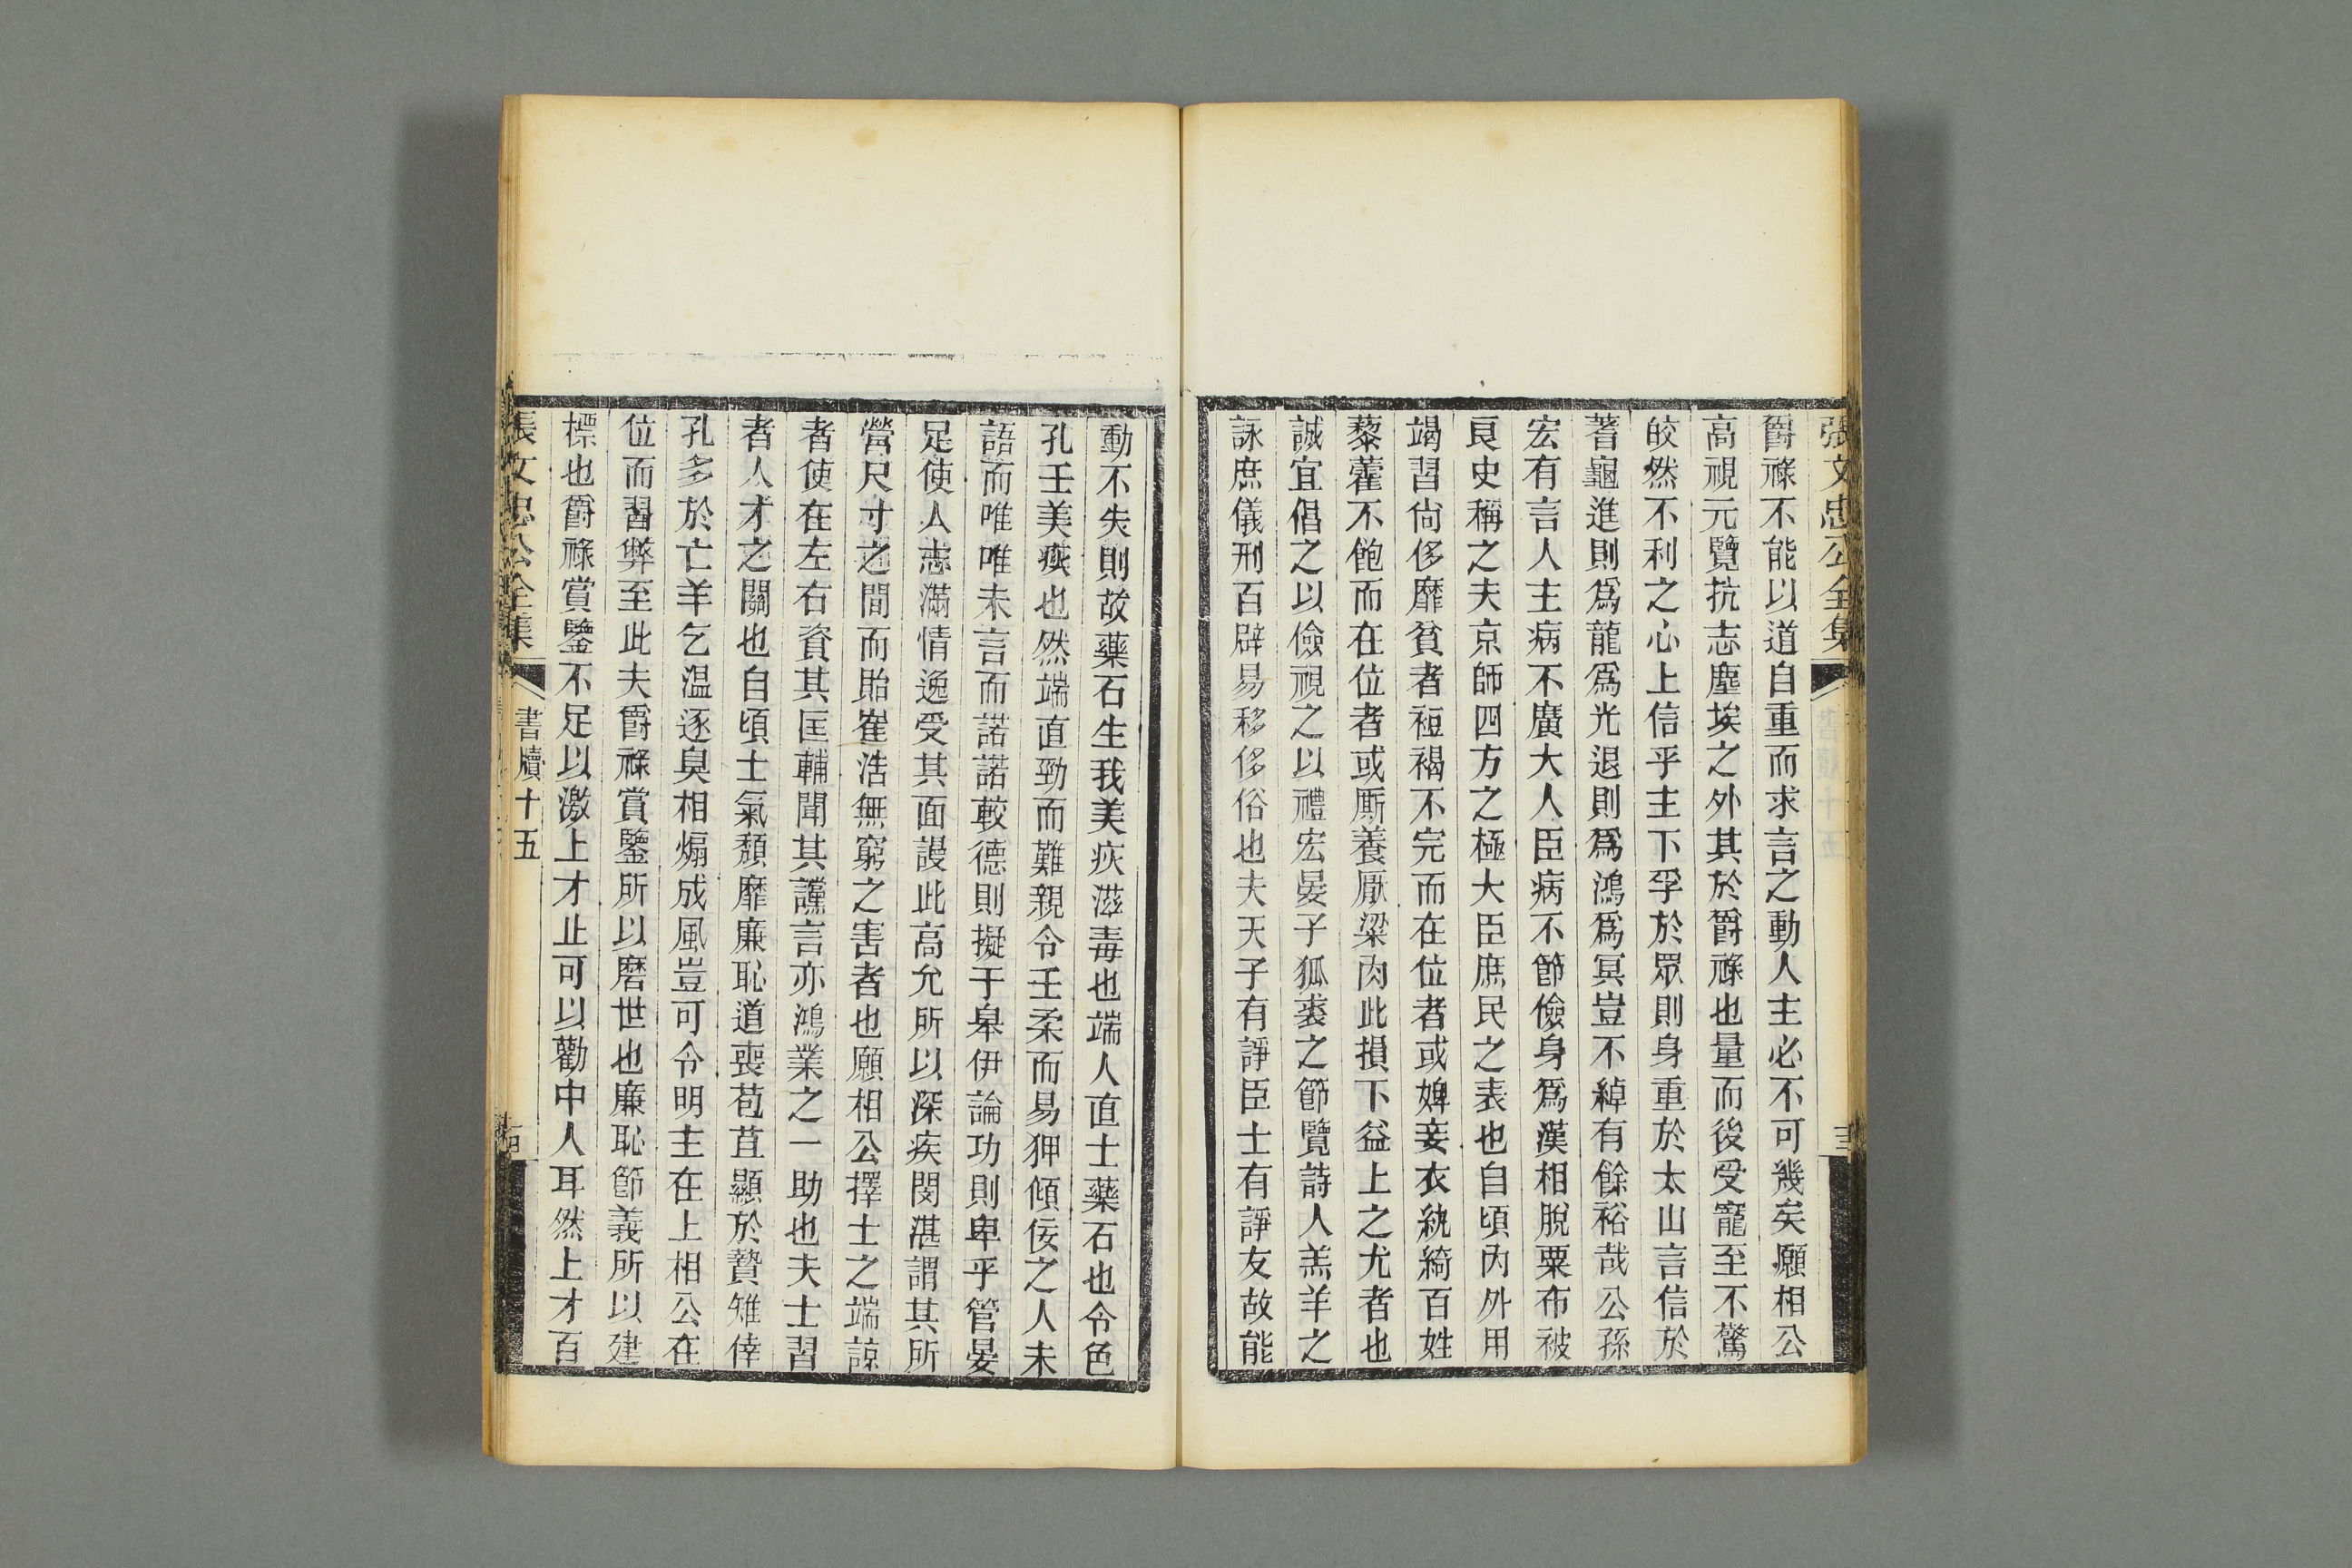 張文忠公全集
爵祿不能以道自重而求言之動人主必不可幾矣願相公
高視元覽抗志塵埃之外其於爵祿也量而後受寵至不驚
皎然不利之心上信乎主下孚於眾則身重於太山言信於
蓍龜進則爲龍爲光退則爲鴻爲冥豈不綽有餘裕哉公孫
宏有言人主病不廣大人臣病不節儉身爲漢相脫粟布被
良史稱之夫京師四方之極大臣庶民之表也自頃內外用
竭習尙侈靡貧者裋褐不完而在位者或婢妾衣紈綺百姓
藜藿不飽而在位者或厮養厭粱肉此損下益上之尤者也
誠宜倡之以儉視之以禮宏晏子狐裘之節覽詩人羔羊之
詠庶儀刑百辟易移侈俗也夫天子有諍臣士有諍友故能
動不失則故藥石生我美疢滋毒也端人直士藥石也令色
孔壬美疢也然端直勁而難親令壬柔而易狎傾佞之人未
語而唯唯未言而諾諾較德則擬于皋伊論功則卑乎管晏
足使人志滿情逸受其面謾此高允所以深疾閔湛謂其所
營尺寸之間而貽崔浩無窮之害者也願相公擇士之端諒
者使在左右資其匡輔聞其讜言亦鴻業之一助也夫士習
者人才之關也自頃士氣頽靡廉恥道喪苞苴顯於贄雉倖
孔多於亡羊乞溫逐臭相煽成風豈可令明主在上相公在
位而習弊至此夫爵祿賞鑒所以磨世也廉恥節義所以建
標也爵祿賞鑒不足以激上才止可以勸中人耳然上才百
張文忠公全集
書牘十五